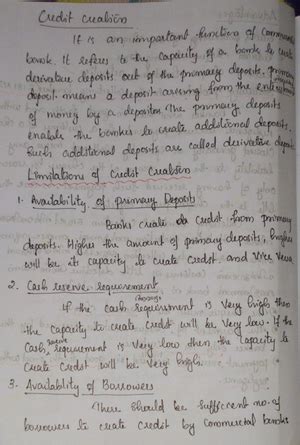 Credit creation
It is an important function of commer
bank. It referes to the capacity of a bank to create
derivative deposits out of the primary deposits. primary
deposit means a deposit arising from the
of money by a depositor. The primary deposits
enable the banker to create additional deposits.
Such additional deposits are called derivative deposit
Limitations of Credit Creation
1. Availability of primary Deposits
Banks create credit from primary
deposits. Higher the amount of primary deposits, higher
will be its capacity to create credit and vice versa
2. Cash reserve requirement
If the cash (reserve) requirement is very high then
the capacity to create credit will be very low. If the
Cash reserve requirement is very low then the capacity to
create credit will be very high.
3. Availability of Borrowers
There should be sufficcent no. of
borrowers to create credit by commercial banks